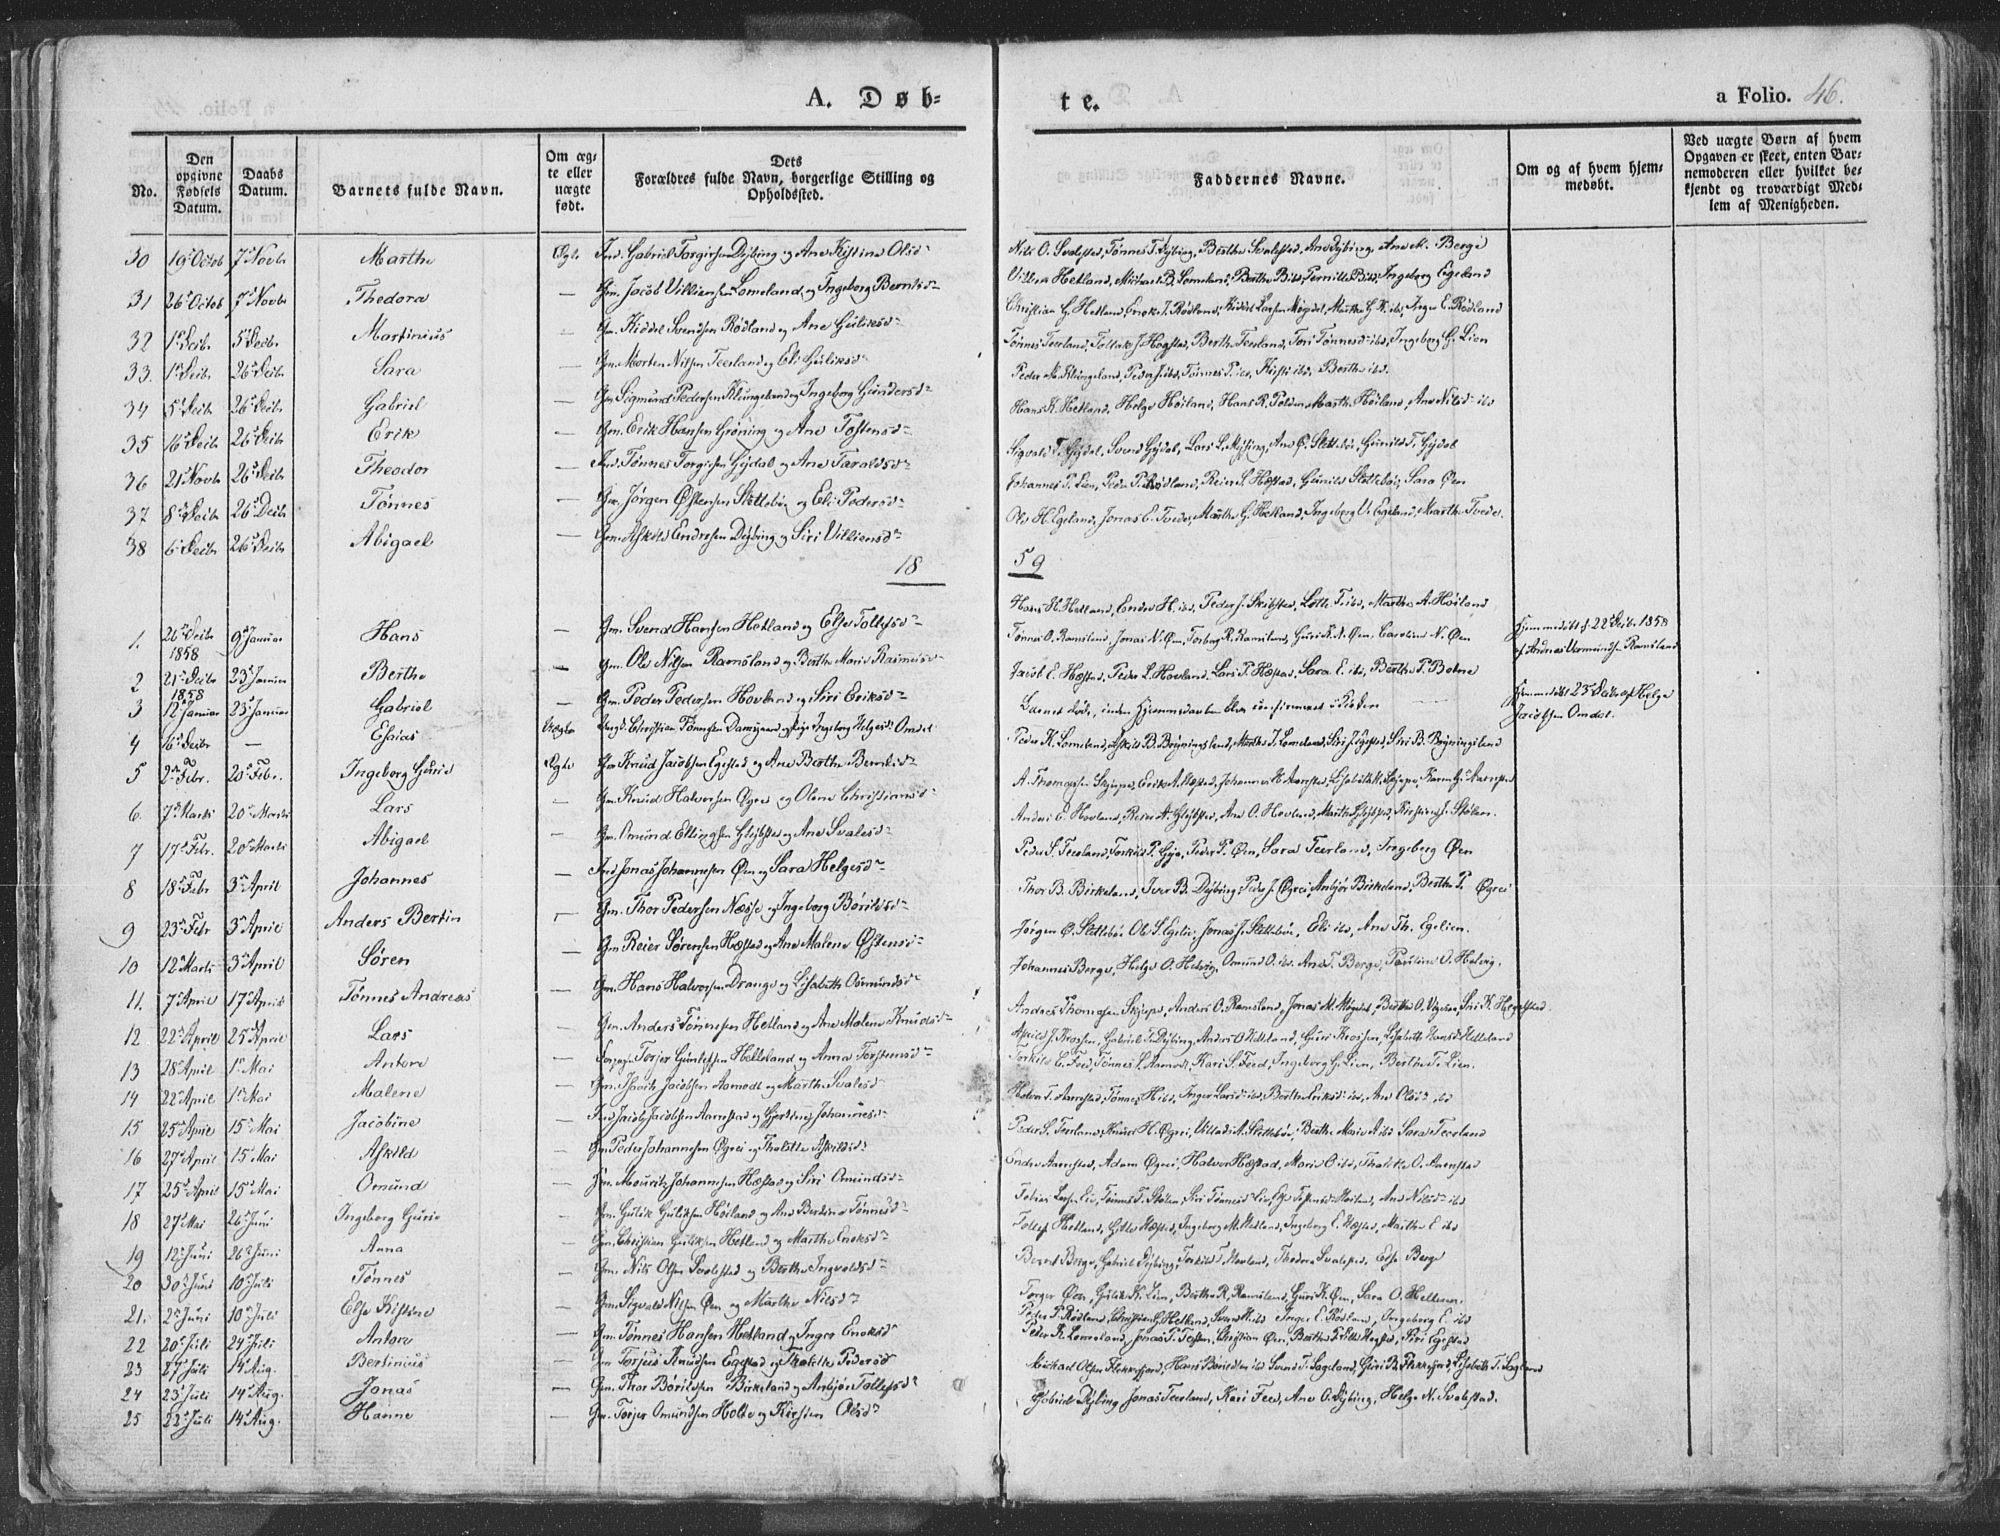 A. Døb-
te.
a Folio. 46.
No.
Den opgivne Fødsels Datum.
Daabs Datum.
Barnets fulde Navn.
Om ægte eller uægte født.
Dets Forældres fulde Navn, borgerlige Stilling og Opholdssted.
Faddernes Navne.
Om og af hvem hjemmedøbt.
Ved uægte Børn af hvem Opgaven er skeet, enten Barnemoderen eller hvilket bekjendt og troværdigt Medlem af Menigheden.
30 19 Octob 7 Novbr Marthe Ægte Gabriel Torgersen Dybing og Ane Kistine Olsd Nils O. Svalestad, Tønnes T. Dybing, Berthe Svalestad, Ane Dybing, Ane M. Berge
31 26 Octob 7 Novbr Thedora — Gm. Jacob Villumsen Lomeland og Ingeborg Berntsd Villum Hetland, Michael B. Lomeland, Berthe ibd, Pernille ibd, Ingeborg Egeland
32 1 Decbr 5 Decbr Martinius — Gm. Kiddel Svendsen Rødland og Ane Guliksd Christian G. Hetland, Enok T. Rødland, Kiddel Larsen Møgdel, Marthe G. K. ibd, Inger E. Rødland
33. 1 Decbr 26 Decbr Sara — Gm. Morten Nilsen Teerland og Eli Guliksd Tønnes Teerland, Tollak J. Hogstad, Berthe Teerland, Tori Tønnesd ibd, Ingeborg G. Lien
34 5 Decbr 26 Decbr Gabriel — Gm. Sigmund Pedersen Klungeland og Ingeborg Gundersd Peder M. Klungeland, Peder J. ibd, Tønnes P. ibd, Kisti ibd, Berthe ibd.
35 16 Decbr 26 Decbr Erik — Gm. Erik Hansen Grøning og Ane Tostensd Hans K. Hetland, Helge Høiland, Hans R. Polden, Marthe Høiland, Ane Nilsd ibd
36 21 Novbr 26 Decbr Theodor — Tønnes Torgersen Gydal og Ane Taraldsd Sigvald T. Gydal, Svend Gydal, Lars L. Mysing, Ane Ø. Slettebø, Gunild T. Gydal
37 8 Decbr 26 Decbr Tønnes — Gm. Jørgen Østensen Slettebø og Eli Pedersd Johannes P. Lien, Peder P. Rødland, Reier S. Hæstad, Gunild Slettebø, Sara Øen
38 6 Decbr 26 Decbr Abigael — Gm. Askild Endresen Dybing og Siri Villumsd Ole H. Egeland, Jonas E. Tvede, Marthe G. Hetland, Ingeborg V. Egeland, Marthe Tvede.
18
59
1. 26 Decbr 1858 9 Januar Hans — Gm. Svend Hansen Hetland og Else Tollefsd Hans H. Hetland, Endre H. ibd, Peder J. Skibstad, Lotte T. ibd, Marthe A. Høiland
2 21 Decbr 1858 23 Januar Berthe — Gm. Ole Nilsen Ramsland og Berthe Marie Rasmusd Tønnes O. Ramsland, Jonas N. Øen, Torborg R. Ramsland, Guri K. N. Øen, Caroline N. Øen Hjemmedøbt d 22 Decbr 1858 af Andreas Ramsland
3 12 Januar 23 Januar Gabriel — Gm. Peder Pedersen Hovland og Siri Eriksd Jacob E. Hæstad, Peder L. Hovland, Lars P. Hæstad, Sara E. ibd, Berthe P. Bolme
4 16 Decbr — Esaias Uægte Ungk. Christian Tønnesen Damsgaard og Pige Ingeborg Helgesd Omdal Barnet døde, inden Hjemmedaaben blev confirmeret i Kirken Hjemmedøbt 23 Decbr af Helge Jacobsen Omdal.
5 2 Febr. 20 Febr. Ingeborg Gurie Ægte Gm Knud Jacobsen Egestad og Ane Berthe Berntsd Peder K. Lomeland, Askild B. Bryningsland, Marthe J. Lomeland, Siri J. Egestad, Siri B. Bryningsland
6. 7 Marts 20 Marts Lars — Gm. Knud Halvorsen Øgrei og Olene Christiansd A. Thomassen Skjerpe, Erik A. Hæstad, Johannes H. Aarrestad, Lisabeth K. Skjerpe, Karen G. Aarrestad
7 17 Febr. 20 Marts Abigael — Gm. Omund Ellingsen Glybstad og Ane Svalesd Anders E. Hovland, Reier A. Glybstad, Ane O. Hovland, Marthe Glybstad, Kirstine J. Stølen.
8 18 Febr 3 April Johannes — Jonas Johannesen Øen og Sara Helgesd Peder S. Teerland, Torkild P. Gya, Peder P. Øen, Sara Teerland, Ingeborg Øen
9 23 Febr 3 April Anders Bertin — Gm. Thor Pedersen Næsse og Ingeborg Børildsd Thor B. Birkeland, Iver B. Dybing, Peder J. Øgrei, Anbjør Birkeland, Berthe P. Øgrei
10 12 Marts 3 April Søren — Gm. Reier Sørensen Hæstad og Ane Malene Østensd Jørgen Ø. Slettebø, Ole S. Egelie, Jonas J. Slettebø, Eli ibd, Ane Th. Egelien.
11. 7 April 17 April Tønnes Andreas — Gm. Hans Halvorsen Drange og Lisabeth Osmundsd Johannes Berge, Helge O. Helvig, Omund O. ibd, Ane T. Berge, Pauline O. Helvig.
12 22 April 25 April Lars — Gm. Anders Tønnesen Hetland og Ane Malene Knudsd Andreas Thomasen Skjerpe, Anders O. Ramsland, Jonas M. Møgdel, Berthe O. , Siri K. Hegelstad
13 28 April 1 Mai Antore — Torjer Guntsen Helleland og Anna Torstensd Askild J. Krossen, Gabriel T. Dybing, Anders O. Hetland, Guri Krossen, Lisabeth Hansd Helleland
14 22 April 1 Mai Malene — Gm. Tharits Jacobsen Aamodt og Marthe Svalesd Torkild E. Feed, Tønnes S. Aamodt, Kari S. Feed, Ingeborg G. Lien, Berthe T. Lien.
15 25 April 15 Mai Jacobine — Jacob Jacobsen Aarrestad og Gjertine Johannesd Helene T. Aarrestad, Tønnes H. ibd, Inger Larsd ibd, Berthe Eriksd ibd, Ane Olsd ibd
16 27 April 15 Mai Askild — Gm Peder Johannesen Øgrei og Thalette Askildsd Peder S. Teerland, Knud H. Øgrei, Villads A. Slettebø, Berthe Marie A. ibd Sara Teerland
17 25 April 15 Mai Omund — Gm. Mouritz Johannesen Hæstad og Siri Omundsd Endre Aarrestad, Adam Øgrei, Halvor Hæstad, Marie O. ibd, Thalette O. Aarrestad
18 27 Mai 26 Juni Ingeborg Gurie — Gm. Gulik Guliksen Høiland og Ane Berdine Tønnesd Tobias Larsen Lie, Tønnes T. Stølen, Siri Tønnesd Lie, Else Høiland, Ane Nilsd ibd
19 12 Juni 26 Juni Anna — Gm. Christian Guliksen Hetland og Marthe Enoksd Tollef Hetland, Hæstad, Ingeborg M. Hetland, Ingeborg E. Næstad, Marthe E. ibd
20 30 Juni 10 Juli Tønnes — Gm. Nils Olsen Svalestad og Berthe Ingvaldsd Bernt Berge, Gabriel Dybing, Torkild T. Hovland, Theodora Svalestad, Else Berge
21. 2 Juni 10 Juli Else Kistine — Gm. Sigvald Nilsen Øen og Marthe Nilsd Torger Øen, Gulik K. Lien, Berthe R. Ramsland, Guri K. Øen, Sara O. Helleren.
22 20 Juli 24 Juli Antore — Gm. Tønnes Hansen Hetland og Inger Enoksd Peder T. Rødland, Christian G. Hetland, Svend H. ibd Inger E. Rødland, Ingeborg E. ibd
23 27 Juli 14 Aug. Bertinius — Gm Torjus Knudsen Egestad og Thalette Pedersd Peder K. Lomeland, Jonas T. Tosten, Christian Øen, Berthe Hogstad, Siri Egestad
24 23 Juli 14 Aug. Jonas — Gm. Thor Børildsen Birkeland og Anbjør Tollefsd Michael Olsen Flekkefjord, Hans Børildsen ibd Svend T. Sageland, Guri B. Flekkefjord, Lisabeth T. Sageland
25 22 Juli 14 Aug. Hanne — Gm. Torjer Omundsen Holte og Kirsten Olsd Gabriel Dybing Jonas Teerland, Kari Feed, Ane O. Dybing, Helge N. Svalestad.